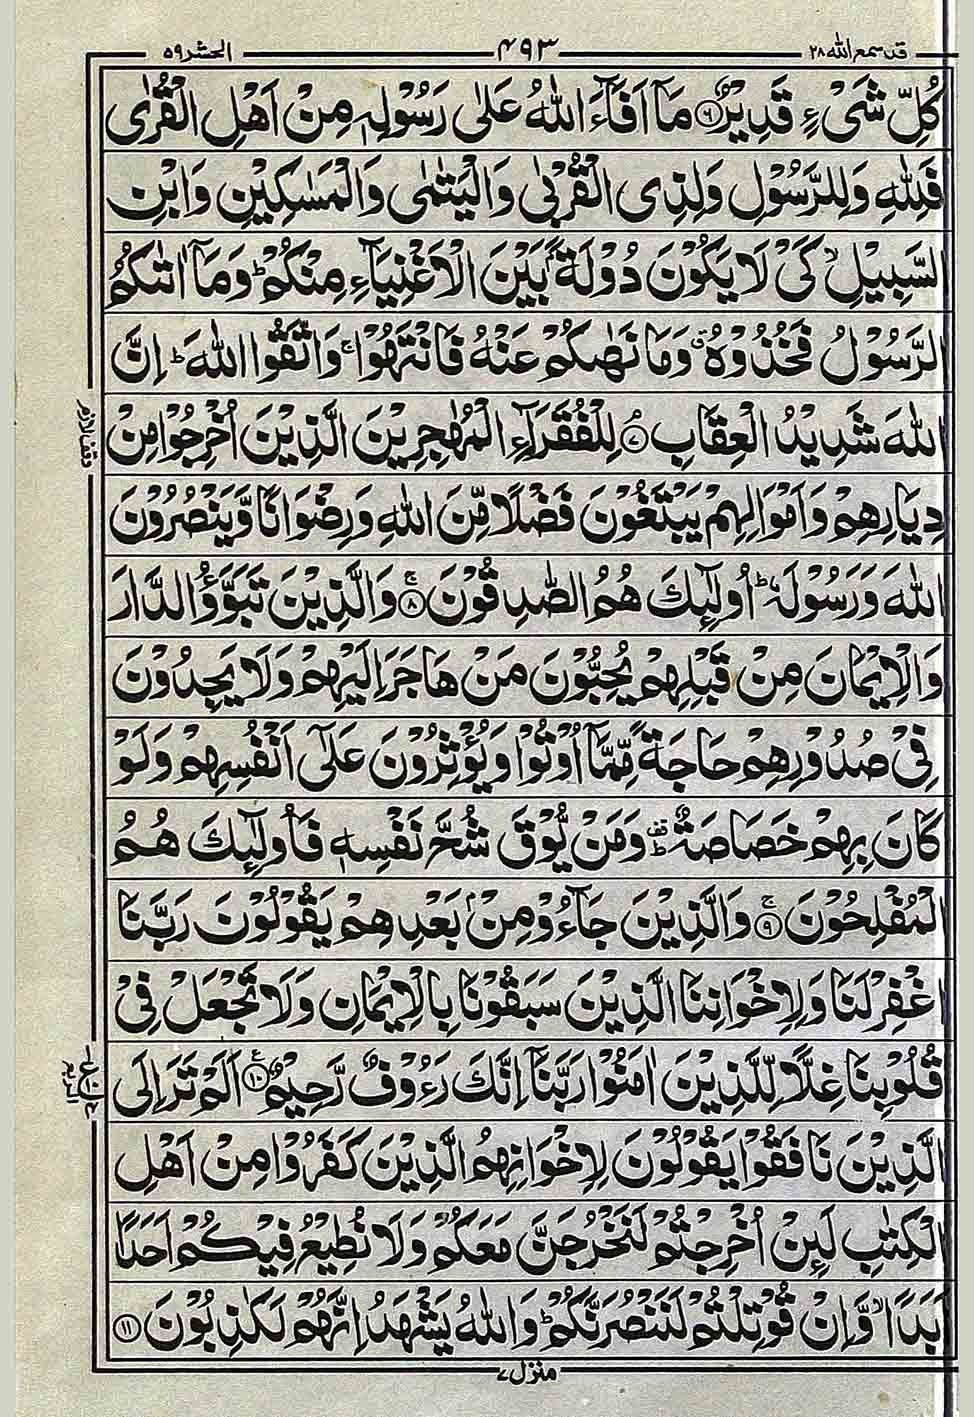 قد سمع الله ۲۸
۴۹۳
الحشر ۵۹
كُلِّ شَیْءٍ قَدِیْرٌ ۶ مَاۤ اَفَآءَ اللّٰهُ عَلٰی رَسُوْلِهٖ مِنْ اَهْلِ الْقُرٰی
فَلِلّٰهِ وَلِلرَّسُوْلِ وَلِذِی الْقُرْبٰی وَالْیَتٰمٰی وَالْمَسٰكِیْنِ وَابْنِ
السَّبِیْلِ ۙ كَیْ لَا یَكُوْنَ دُوْلَةًۢ بَیْنَ الْاَغْنِیَآءِ مِنْكُمْ ؕ وَمَاۤ اٰتٰىكُمُ
الرَّسُوْلُ فَخُذُوْهُ ۗ وَمَا نَهٰىكُمْ عَنْهُ فَانْتَهُوْا ۚ وَاتَّقُوا اللّٰهَ ؕ اِنَّ
اللّٰهَ شَدِیْدُ الْعِقَابِ ۷ لِلْفُقَرَآءِ الْمُهٰجِرِیْنَ الَّذِیْنَ اُخْرِجُوْا مِنْ
دِیَارِهِمْ وَاَمْوَالِهِمْ یَبْتَغُوْنَ فَضْلًا مِّنَ اللّٰهِ وَرِضْوَانًا وَّیَنْصُرُوْنَ
اللّٰهَ وَرَسُوْلَهٗ ؕ اُولٰٓىِٕكَ هُمُ الصّٰدِقُوْنَ ۚ ۸ وَالَّذِیْنَ تَبَوَّؤُ الدَّارَ
وَالْاِیْمَانَ مِنْ قَبْلِهِمْ یُحِبُّوْنَ مَنْ هَاجَرَ اِلَیْهِمْ وَلَا یَجِدُوْنَ
فِیْ صُدُوْرِهِمْ حَاجَةً مِّمَّاۤ اُوْتُوْا وَیُؤْثِرُوْنَ عَلٰۤی اَنْفُسِهِمْ وَلَوْ
كَانَ بِهِمْ خَصَاصَةٌ ؕ۫ وَمَنْ یُّوْقَ شُحَّ نَفْسِهٖ فَاُولٰٓىِٕكَ هُمُ
الْمُفْلِحُوْنَ ۚ ۹ وَالَّذِیْنَ جَآءُوْ مِنْۢ بَعْدِهِمْ یَقُوْلُوْنَ رَبَّنَا
اغْفِرْ لَنَا وَلِاِخْوَانِنَا الَّذِیْنَ سَبَقُوْنَا بِالْاِیْمَانِ وَلَا تَجْعَلْ فِیْ
قُلُوْبِنَا غِلًّا لِّلَّذِیْنَ اٰمَنُوْا رَبَّنَاۤ اِنَّكَ رَءُوْفٌ رَّحِیْمٌ ۱۰ اَلَمْ تَرَ اِلَی
الَّذِیْنَ نَافَقُوْا یَقُوْلُوْنَ لِاِخْوَانِهِمُ الَّذِیْنَ كَفَرُوْا مِنْ اَهْلِ
الْكِتٰبِ لَىِٕنْ اُخْرِجْتُمْ لَنَخْرُجَنَّ مَعَكُمْ وَلَا نُطِیْعُ فِیْكُمْ اَحَدًا
اَبَدًا ۙ وَّاِنْ قُوْتِلْتُمْ لَنَنْصُرَنَّكُمْ ؕ وَاللّٰهُ یَشْهَدُ اِنَّهُمْ لَكٰذِبُوْنَ ۱۱
منزل ۷